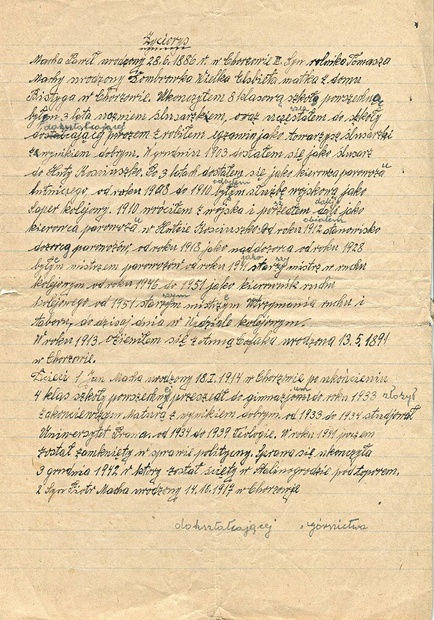 Życiorys
Macha Paweł urodzony 28.6.1886 r. w Chorzowie III. Syn rolnika Tomasza
Machy urodzony Dombrowka Wielka Elsbieta matka z domu
Bistyga w Chorzowie. Ukończyłem 8 klasową szkołę powszechną
byłym 3 lata uczniem ślusarskiem, oraz uczęstałem do szkoły
dokształcającej
poczem zrobiłem egzamin jako towarzysz ślusarski
z wynikiem dobrym. W grudniu 1903 dostałem się jako ślusarz
do Huty Kosciuszko. Po 3 latach dostałem się jako kierowca parowozu
hutniczego od roku 1908 do 1910 odbyłym służbę wojskową jako
saper kolejowy. 1910 wróciłem z wojska i poszedłem dalej jako
kierowca parowoza w Hutcie Kosciuszko od roku 1912 stanowisko
dozorcy parowozów, od roku 1918 jako naddozorca od roku 1928
byłym mistrzem parowozów od roku 1941 jako starszy mistrz w ruchu
kolejowym od roku 1946 do 1951 jako kierownik ruchu
kolejowego od 1951 starszym mistrzem Utrzymania ruchu i
taboru, do dzisaj dnia w Wydziele kolejowym.
W roku 1913 ożeniłem się z Anną Cofalka urodzona 13.5.1891
w Chorzowie.
Dzieci 1 Jan Macha urodzony 18.I.1914 w Chorzowie po ukończeniu
4 klas szkoły powszechnej przeszedł do gimnazjum do roku 1933 złożył
Matura z wynikiem dobrym od 1933 do 1934 studjował
Uniwersytet Prawa. od 1934 do 1939 teologie. W roku 1941 pozem
został zamknięty w sprawie polityczny. Sprawa się ukończyła
3 grudnia 1942 w ktory został scięty w Stalinogrodzie pod toporem.
2 Syn Piotr Macha urodzony 14.10.1917 w Chorzowie
dokształcającej górnictwa